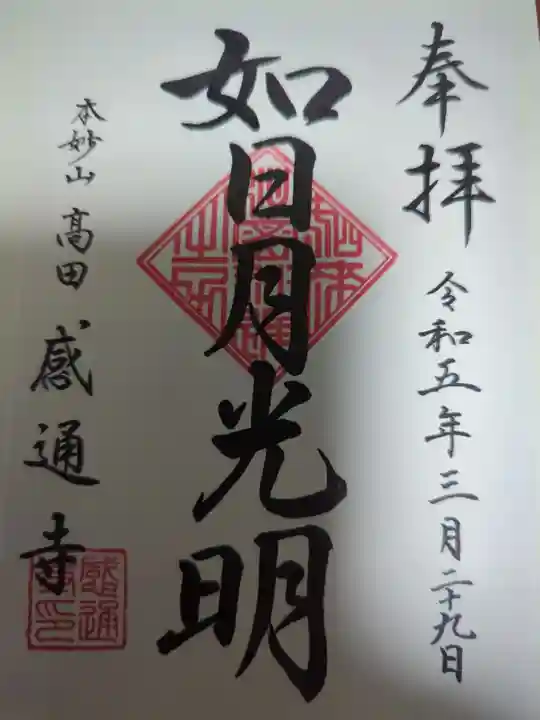 奉拝
令和五年三月二十九日
如日月光明
本妙山
高田
感通寺
感通寺印